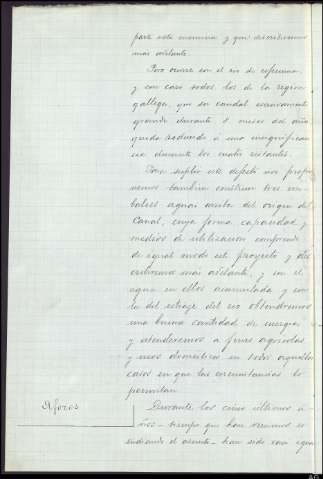 para este examina y que describiremos
más adelante.
Pero ocurre con el río de referencia
y con casi todos los de la región
gallega, que su caudal sumamente
grande durante 8 meses del año
queda reducido á una insignifican
cia durante los cuatro restantes.
Para suplir este defecto nos propo
nemos tambien construir tres em
balses aguas arriba del origen del
Canal, cuya forma, capacidad y
medios de utilización comprende
de igual modo este proyecto y des
cribiremos más adelante, y con el
agua en ellos acumulada y con
la del estiaje del río obtendremos
una buena cantidad de energía
y atenderemos a fines agrícolas
y usos domésticos en todos aquellos
casos en que las circunstancias lo
permitan.
Aforos
Durante los cinco últimos a-
ños - tiempo que han venimos es
tudiando el asunto - han sido casi igua